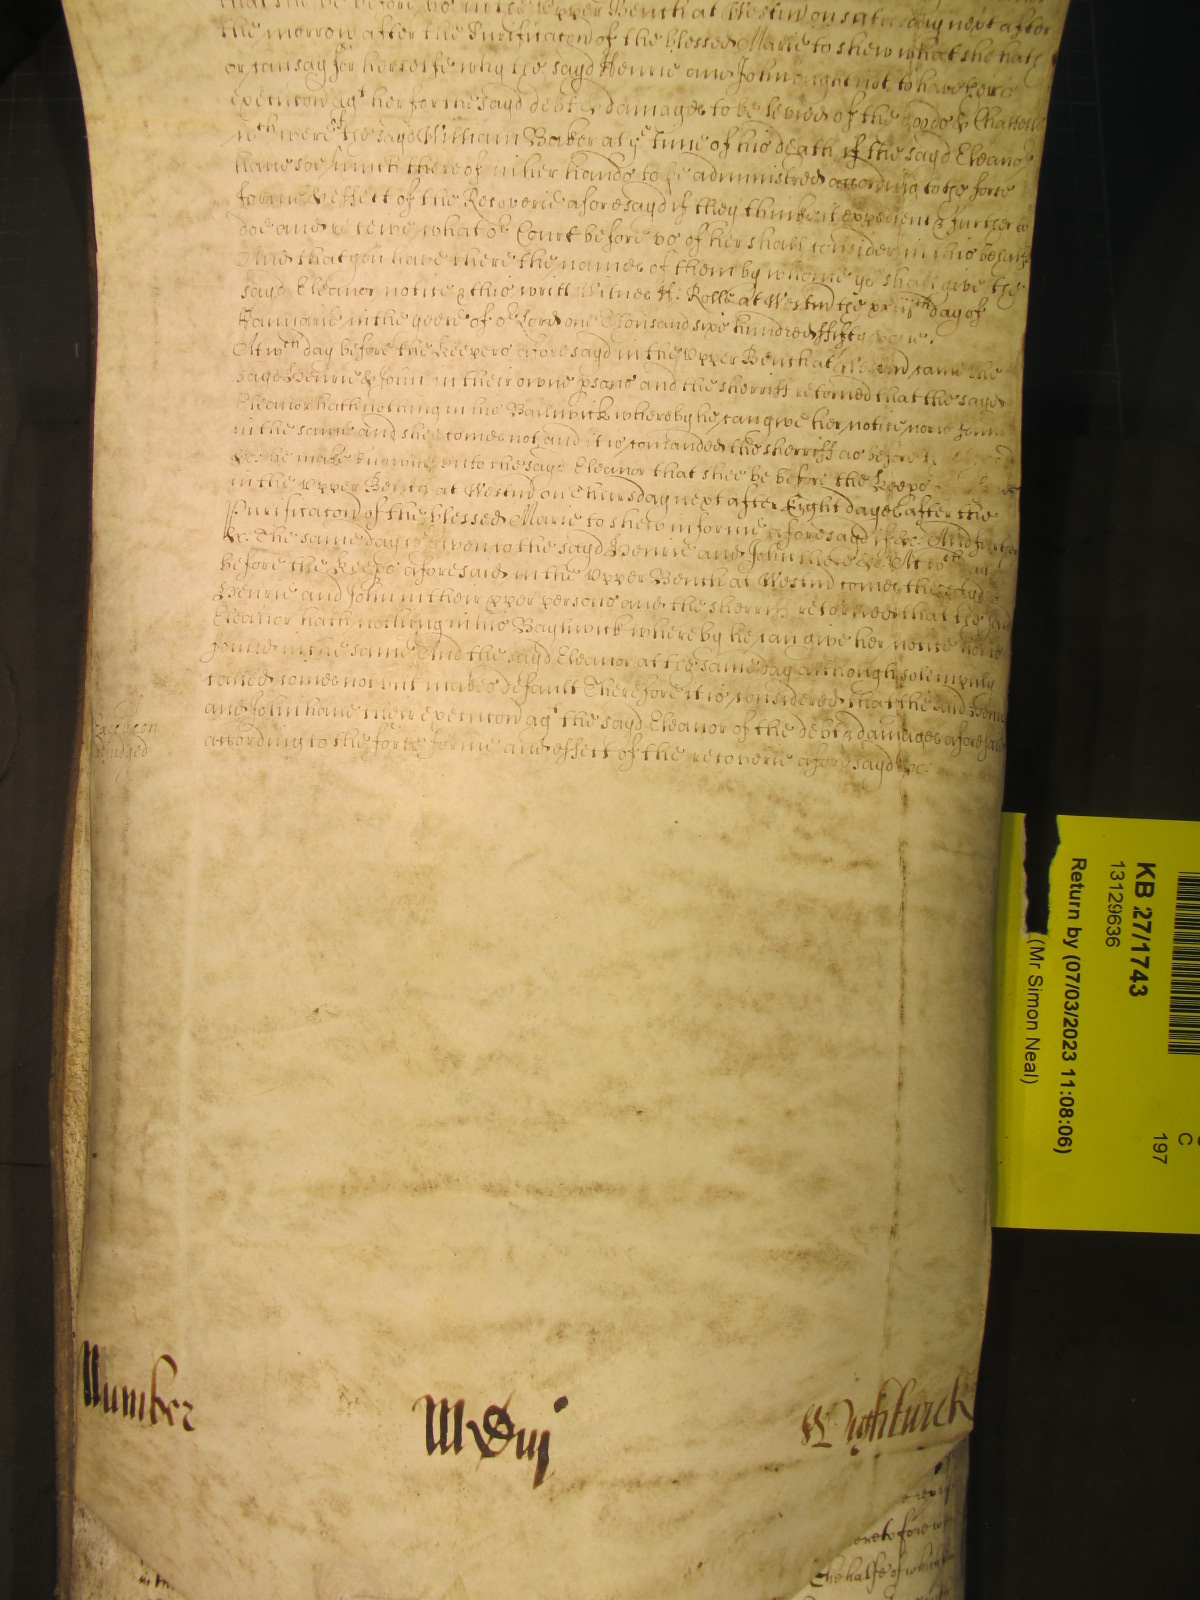 that she be before vs in the vpper Bench at Westm on satu next after
the morrow after the Purificacon of the blessed Marie to shew what she hath
or can say for herselfe why the sayd Henrie and John ought not to have their
execucon agt her for the sayd debt & damages to be levied of the goods & Chattells
wch were the sayd William Baker at ye tyme of his death if the sayd Eleanor
have soe much thereof in her hands to be administred according to the force
forme & effect of the Recoverie aforesayd if they thinke it expedient & further to
doe and receive what or Court before vs of her shall consider in this behalfe
And that you have there the names of them by whome ye shall give the
sayd Eleanor notice & this writt Witnes H: Rolle at Westm the day of
Januarie in the yeere of or Lord one Thousand sixe hundred fifty one.
At wch day before the Keepers aforesayd in the Vpper Bench at Westm came the
sayd Henrie & John in their owne psons and the sherriff retorned that the sayd
Eleanor hath nothing in his Bailiwick whereby he can give her notice nor is found
in the same and shee comes not and it is comanded the sherriff as before
&c: he make knowne vnto the sayd Eleanor that shee be before the Keeps
in the Vpper Bench at Westm on Thursday next after Eight dayes after the
Purificacon of the blessed Marie to shew in forme aforesayd if &c: And further
&c. The same day is given to the sayd Henrie and John there &c. At wch day
before the Keeps aforesaid in the Vpper Bench at Westm comes the sayd
Henrie and John in their pper persons and the sherriff retorned that the sayd
Eleanor hath nothing in his Bayliwick whereby he can give her notice nor is
found in the same And the sayd Eleanor at the same day although solempnly
called comes not but makes default Therefore it is considered that the said Henrie
and John have their execucon agt the sayd Eleanor of the debt & damages aforesaid
according to the force forme and effect of the recoverie aforesayd &c:
Number
M Diij
W. Wightwick
eretofore
the halfe of which
KB 27/1743
13129636
Return by (07/03/2023 11:08:06)
(Mr Simon Neal)
C
197